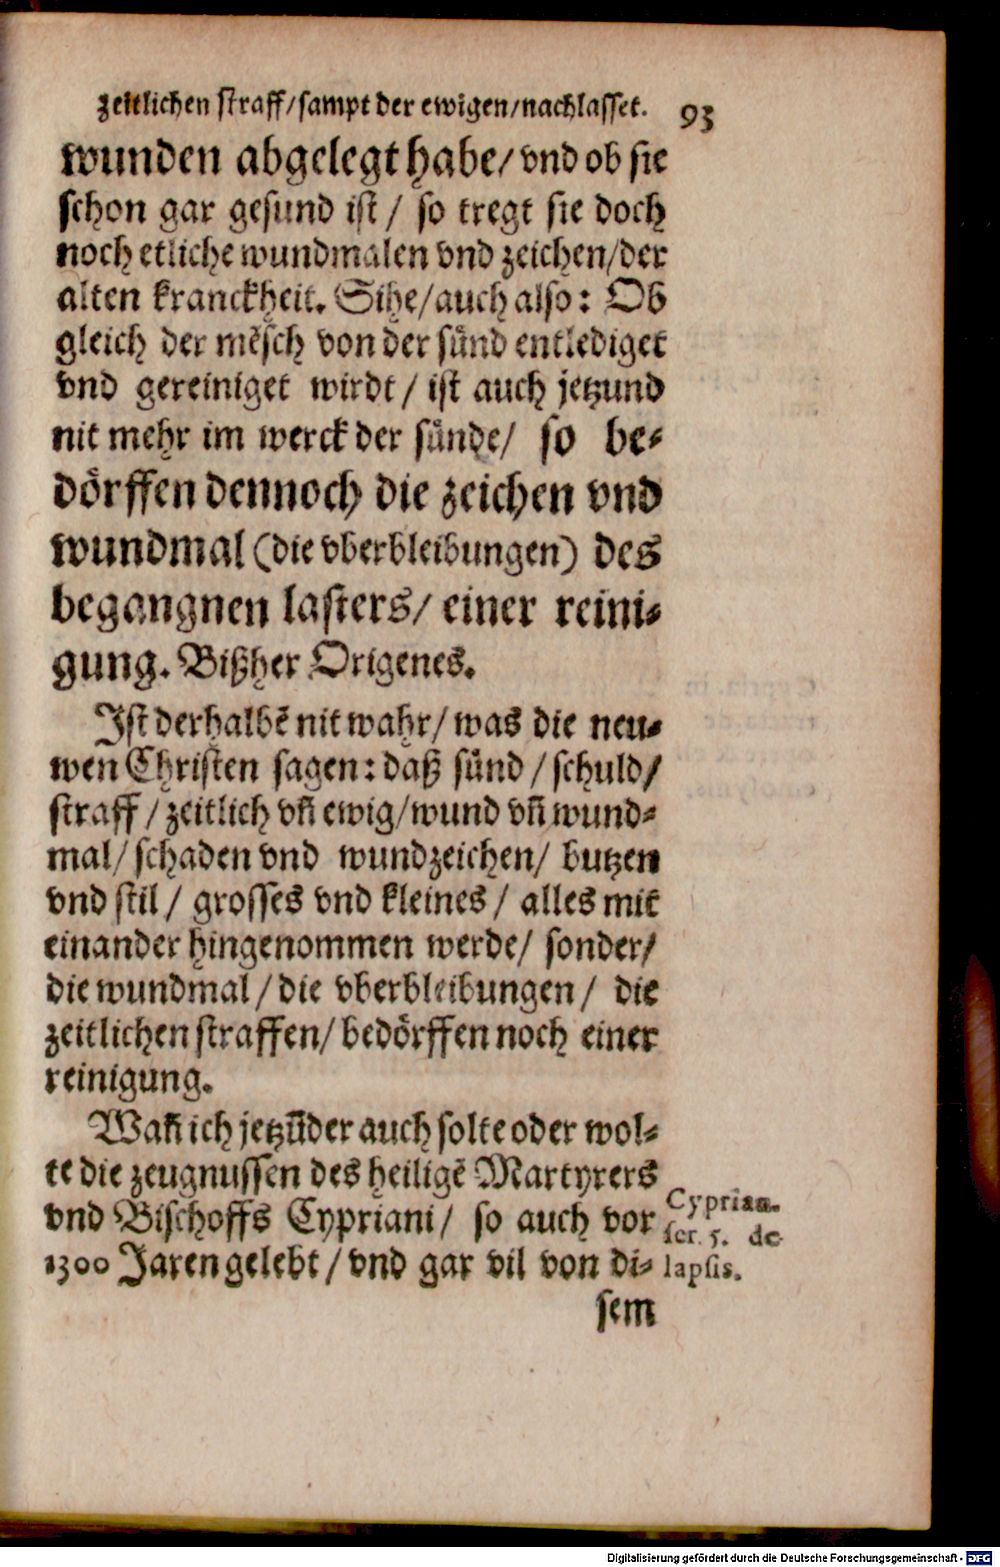 zeitlichen straff/sampt der ewigen/nachlasset. 93
wunden abgelegt habe/ vnd ob sie
schon gar gesund ist / so tregt sie doch
noch etliche wundmalen vnd zeichen/der
alten kranckheit. Sihe/auch also: Ob
gleich der mẽsch von der sünd entlediget
vnd gereiniget wirdt / ist auch jetzund
nit mehr im werck der sünde/ so be-
dörffen dennoch die zeichen vnd
wundmal (die vberbleibungen) des
begangnen lasters/ einer reini-
gung. Bißher Origenes.
Ist derhalbẽ nit wahr/ was die neu-
wen Christen sagen: daß sünd / schuld/
straff / zeitlich vñ ewig/wund vñ wund-
mal/ schaden vnd wundzeichen/ butzen
vnd stil / grosses vnd kleines / alles mit
einander hingenommen werde/ sonder/
die wundmal / die vberbleibungen / die
zeitlichen straffen/ bedörffen noch einer
reinigung.
Wañ ich jetzũder auch solte oder wol-
te die zeugnussen des heiligẽ Martyrers
vnd Bischoffs Cypriani / so auch vor
1300 Jaren gelebt / vnd gar vil von di-
Cyprian.
ser. 5. de
lapsis.
sem
Digitalisierung gefördert durch die Deutsche Forschungsgemeinschaft - DFG